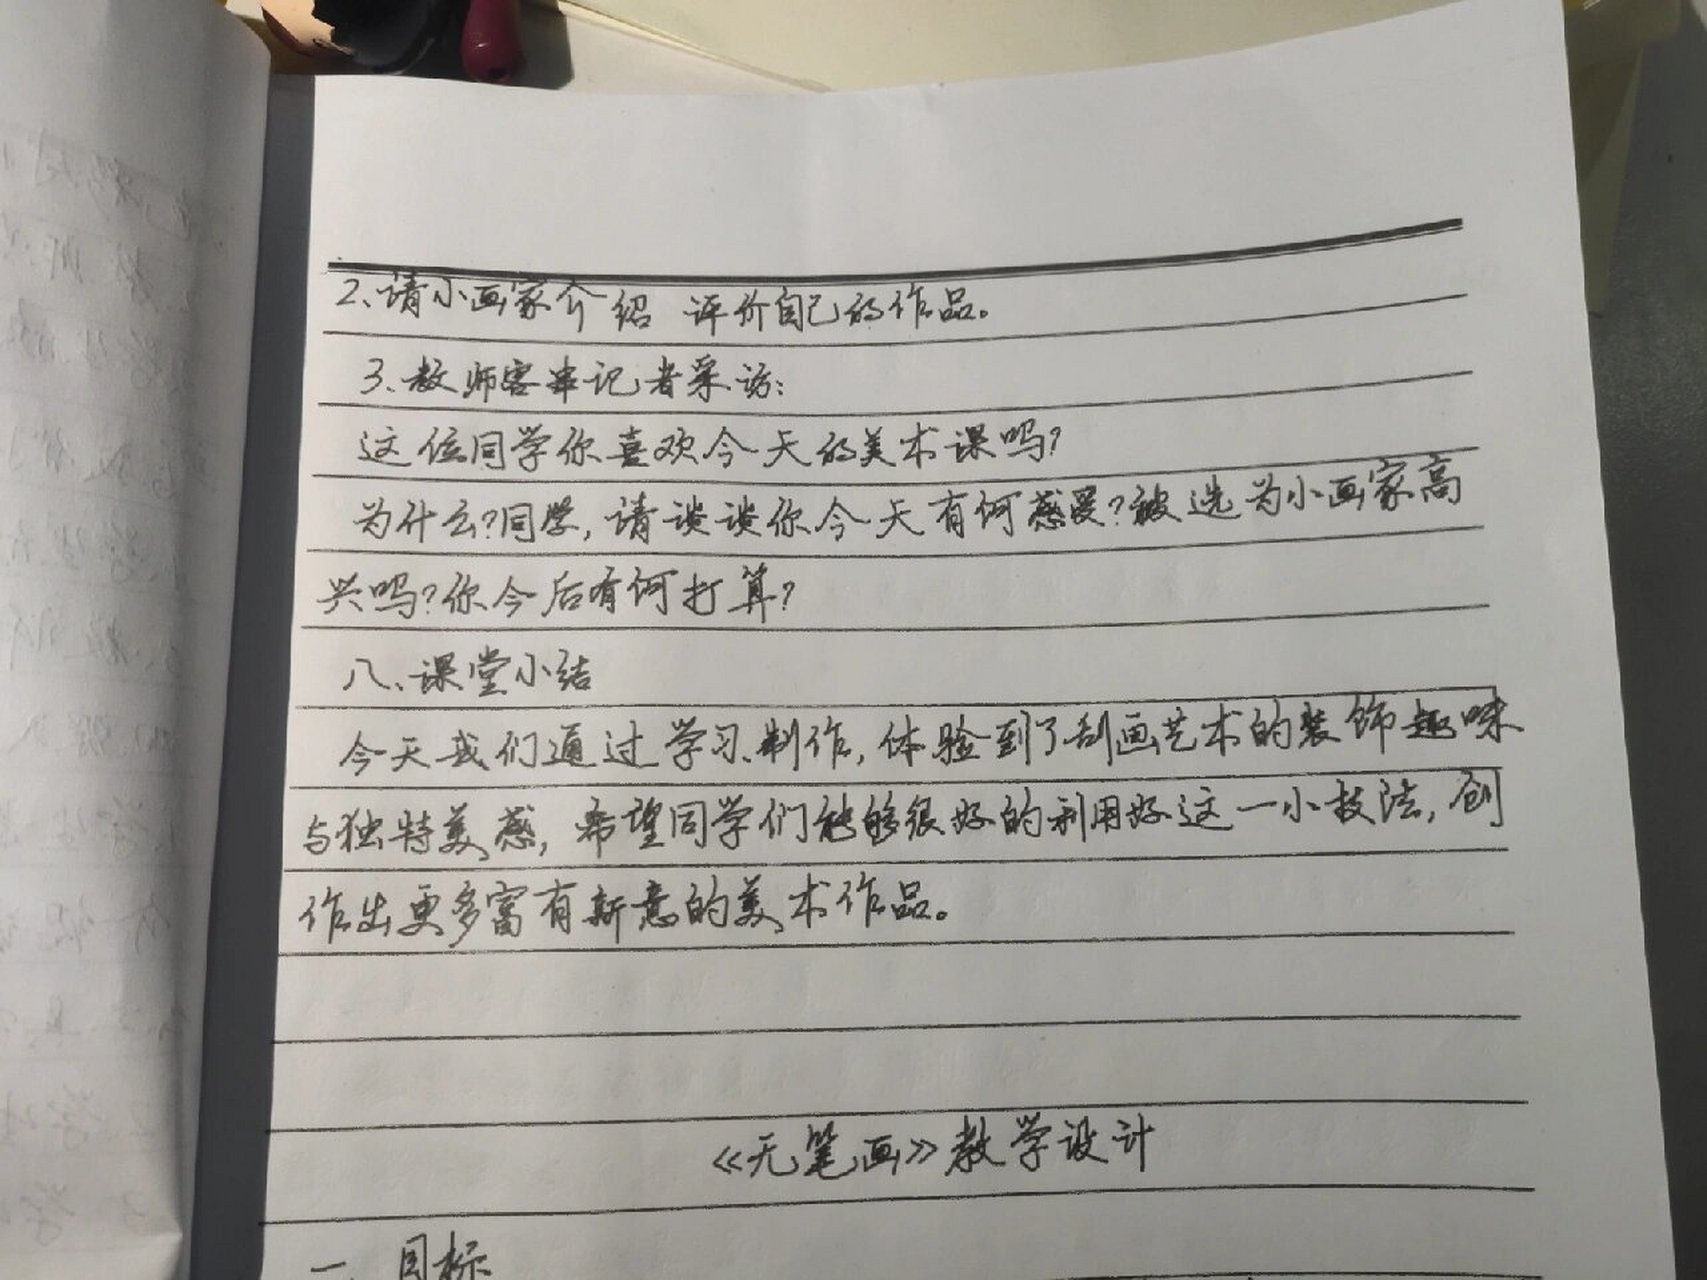 2、请小画家介绍 评价自己的作品。
3、教师客串记者采访:
这位同学你喜欢今天的美术课吗?
为什么?同学,请谈谈你今天有何感受?被选为小画家高
兴吗?你今后有何打算?
八、课堂小结
今天我们通过学习、制作,体验到了刮画艺术的装饰趣味
与独特美感,希望同学们能够很好的利用好这一小技法,创
作出更多富有新意的美术作品。
《无笔画》教学设计
一、目标